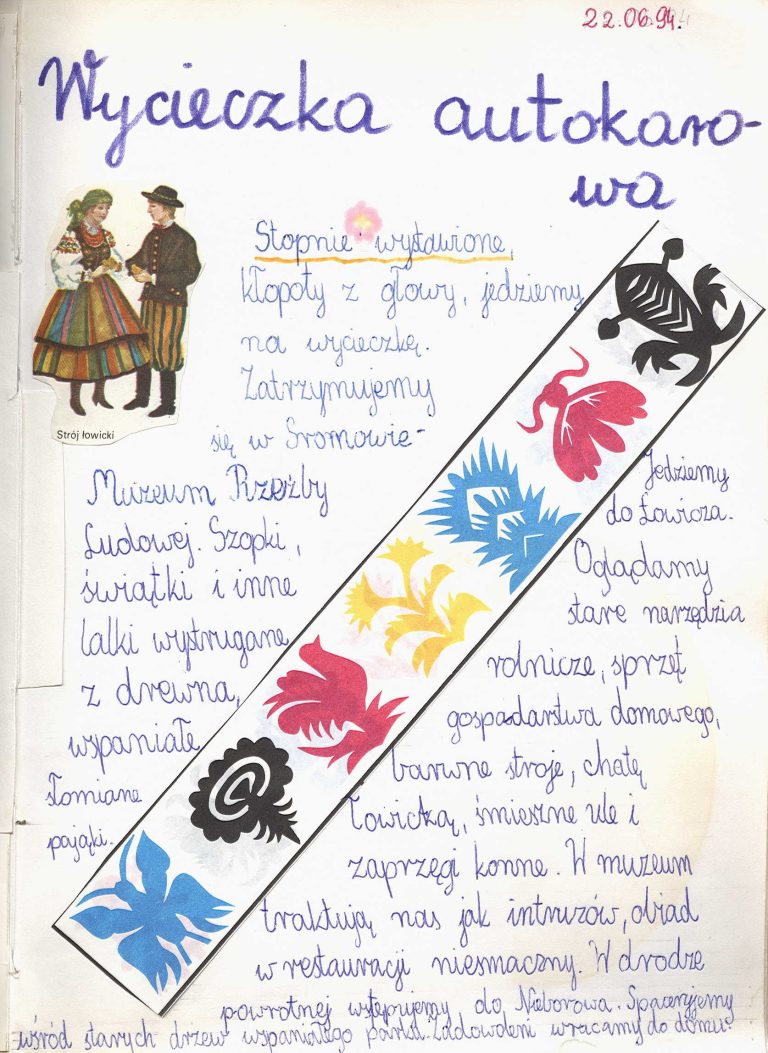 22.06.94.
Wycieczka autokaro-
wa
Strój łowicki
Stopnie wystawione,
kłopoty z głowy, jedziemy
na wycieczkę.
Zatrzymujemy
się w Sromowie-
Muzeum Rzeźby
Ludowej. Szopki,
świątki i inne
lalki wystrugane
z drewna,
wspaniałe
słomiane
pająki.
Jedziemy
do Łowicza.
Oglądamy
stare narzędzia
rolnicze, sprzęt
gospodarstwa domowego,
barwne stroje, chatę
Łowicką, śmieszne ule i
zaprzęgi konne. W muzeum
traktują nas jak intruzów, obiad
w restauracji niesmaczny. W drodze
powrotnej wstępujemy do Nieborowa. Spacerujemy
wśród starych drzew wspaniałego parku. Zadowoleni wracamy do domu.